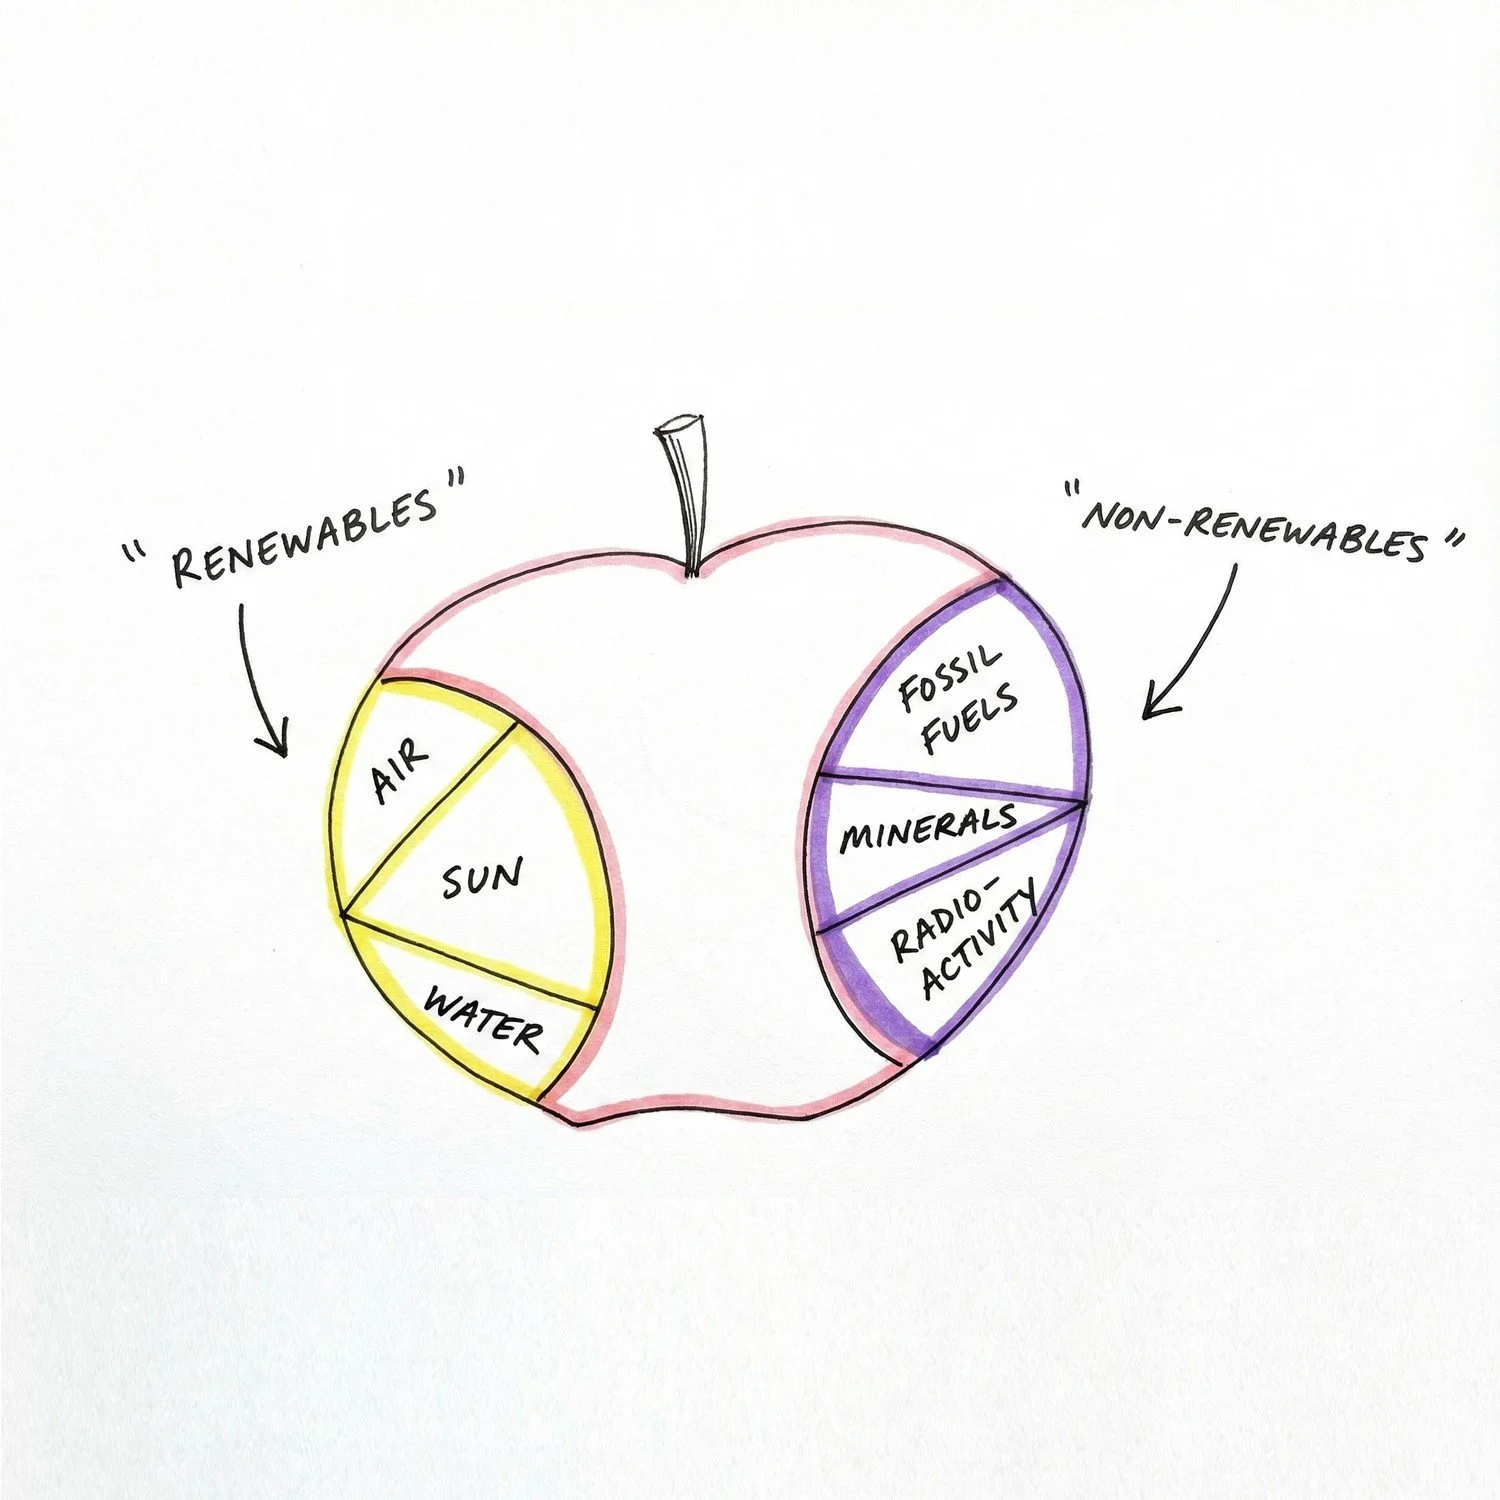 "RENEWABLES"
"NON-RENEWABLES"
AIR
SUN
WATER
FOSSIL
FUELS
MINERALS
RADIO-
ACTIVITY